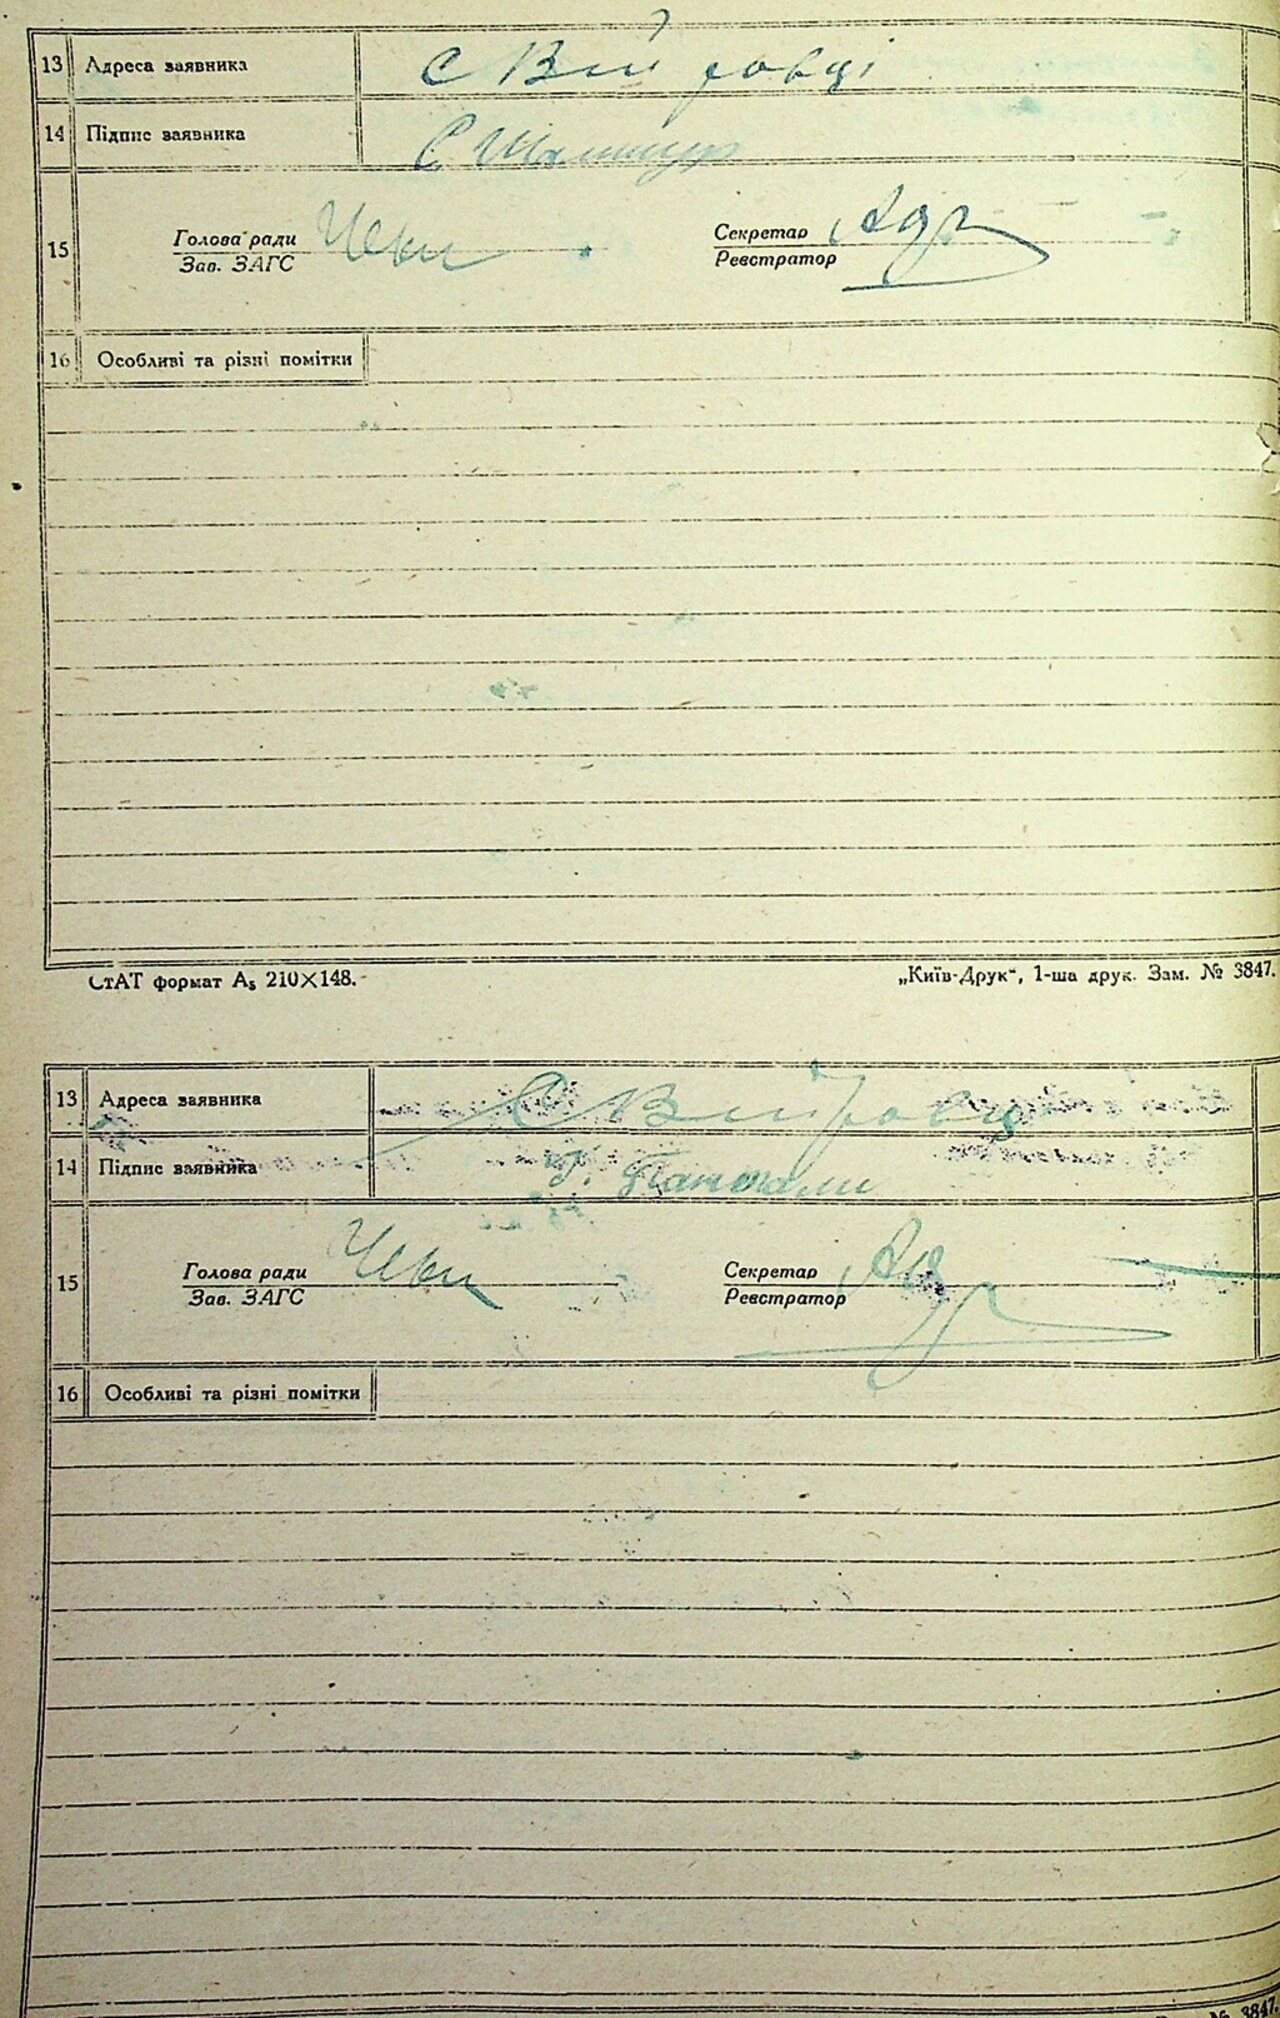 13 Адреса заявника с Війтовці
14 Підпис заявника
15 Голова ради Секретар
Зав. ЗАГС Реєстратор
16 Особливі та різні помітки
СтАТ формат А₅ 210×148. „Київ-Друк“, 1-ша друк. Зам. № 3847.
13 Адреса заявника С Війтовці
14 Підпис заявника
15 Голова ради Секретар
Зав. ЗАГС Реєстратор
16 Особливі та різні помітки
№ 3847.